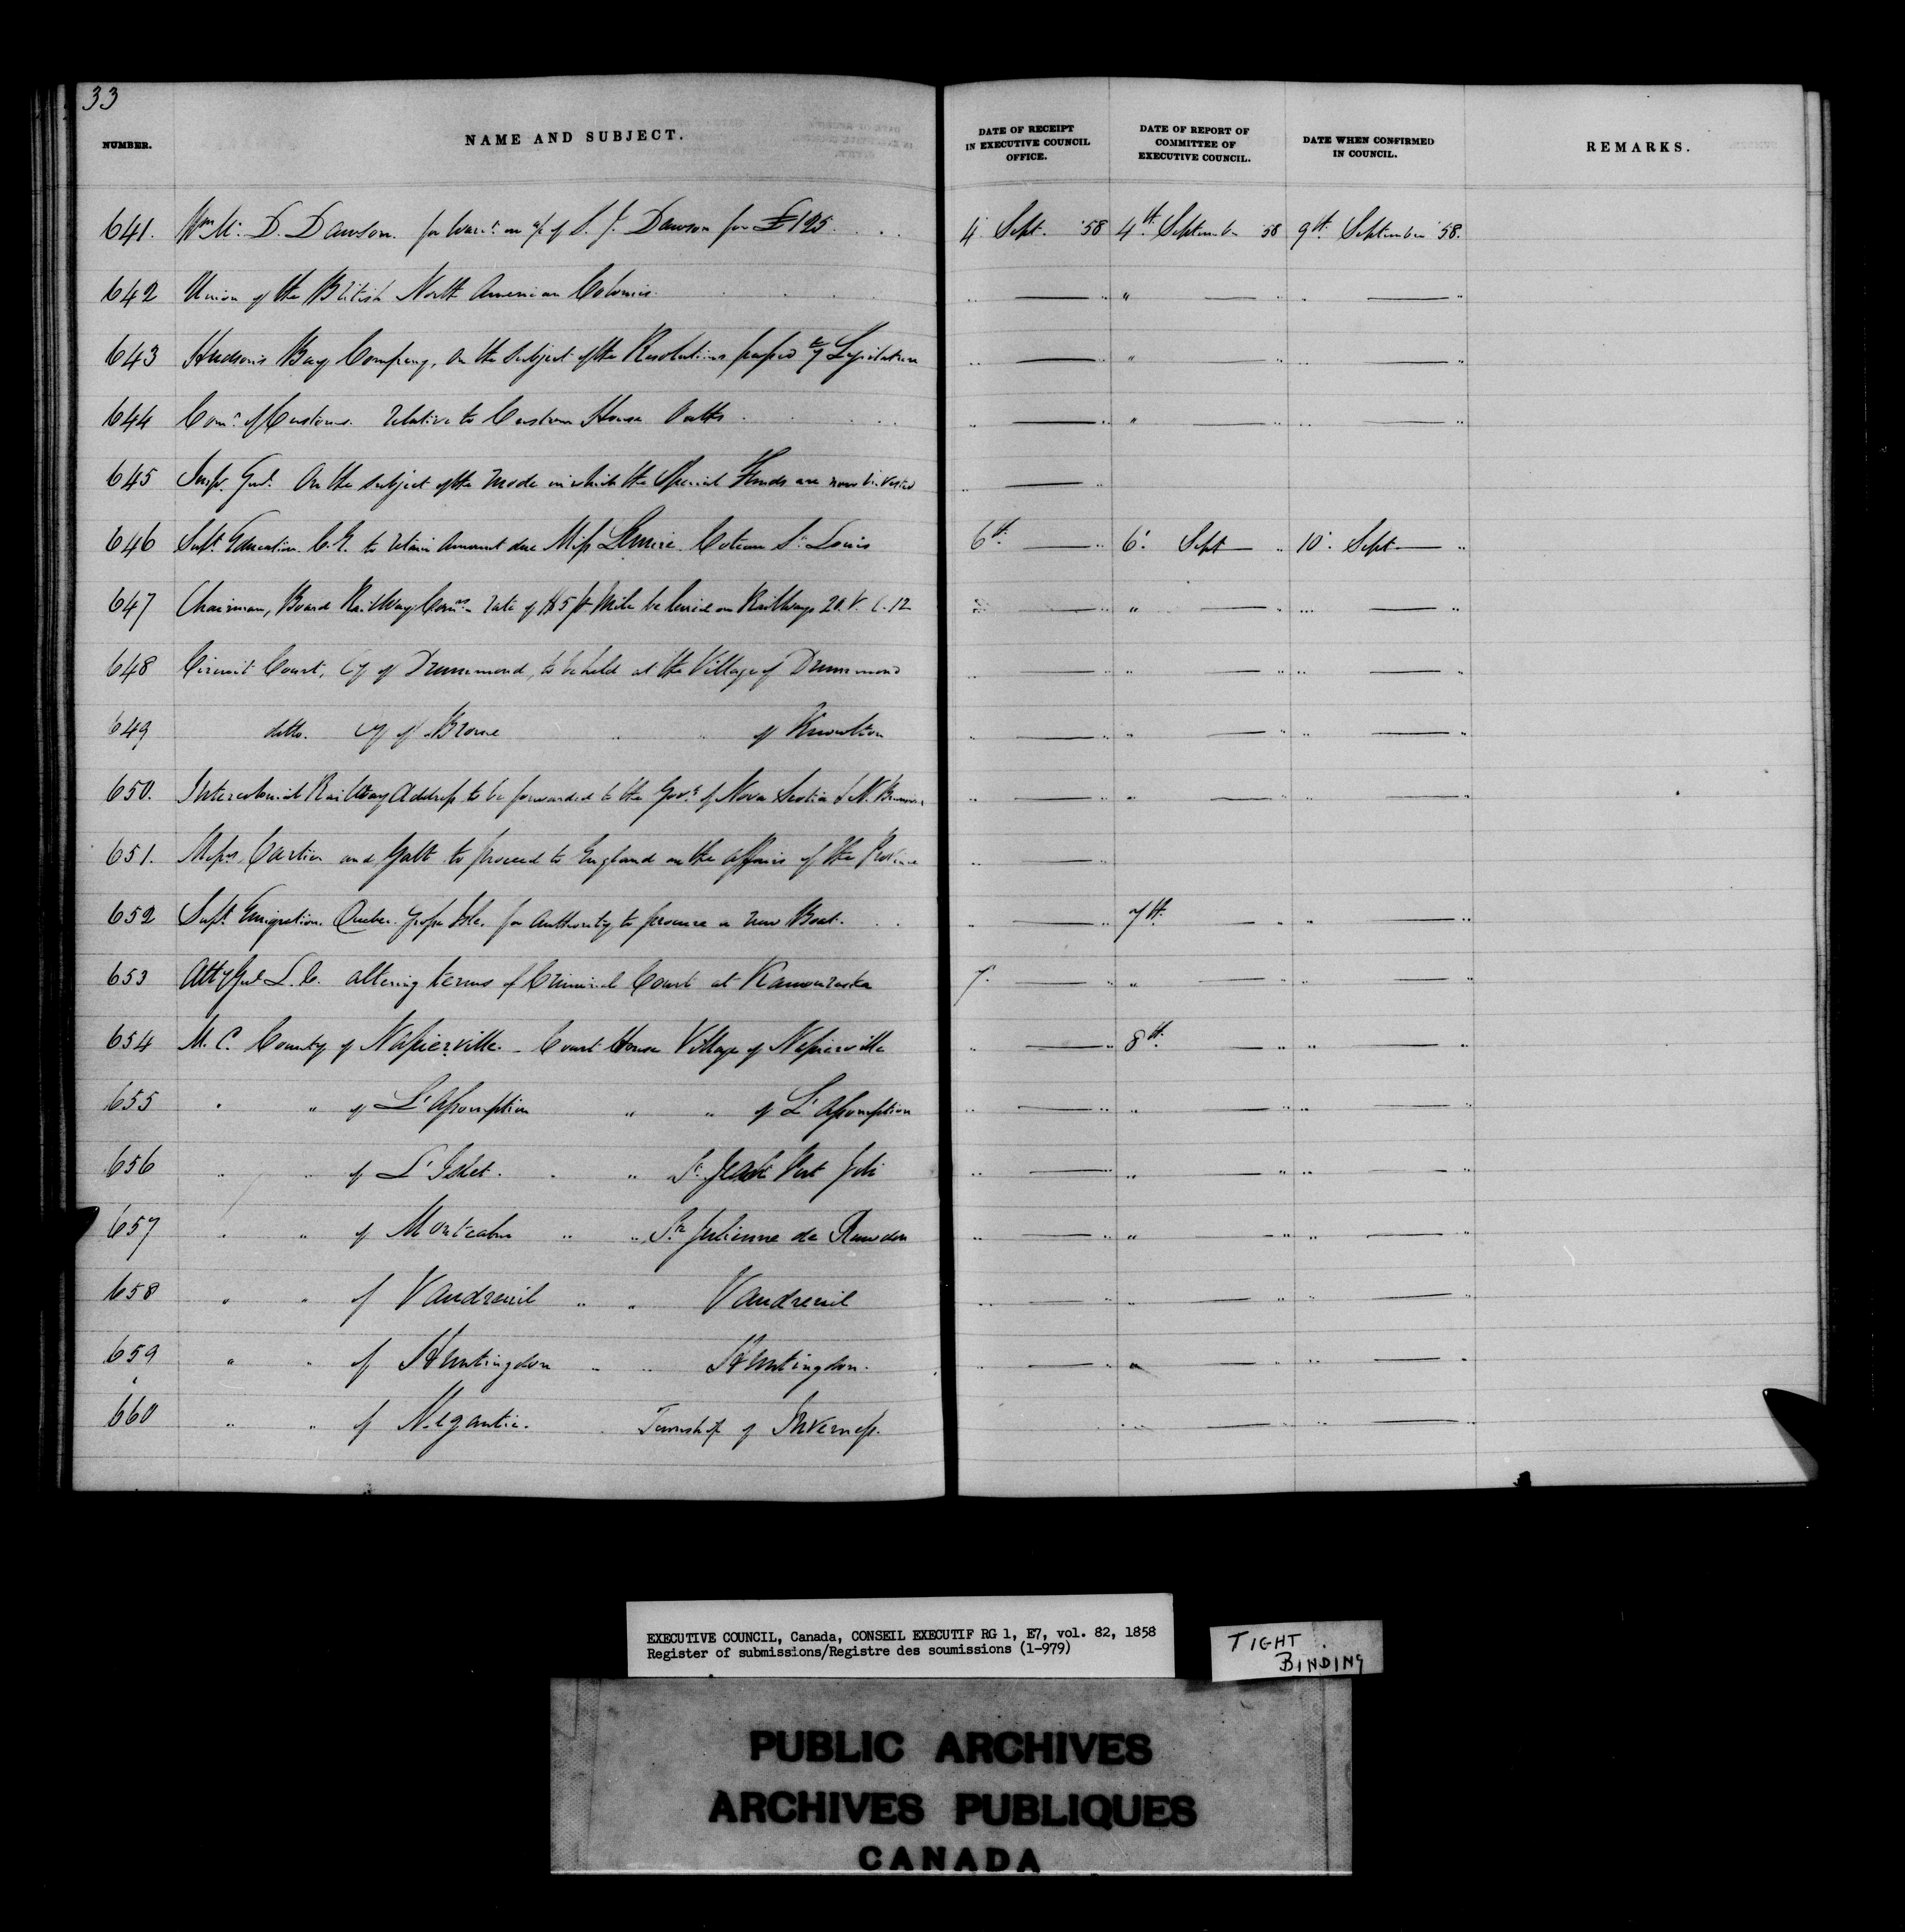 33
NUMBER. NAME AND SUBJECT. DATE OF RECEIPT IN EXECUTIVE COUNCIL OFFICE. DATE OF REPORT OF COMMITTEE OF EXECUTIVE COUNCIL. DATE WHEN CONFIRMED IN COUNCIL. REMARKS.
641. Wm Mc D. Dawson. for Warrt on a/c of S. J. Dawson for £125. 4 Sept. '58 4th September 58 9th September '58.
642 Union of the British North American Colonies. " "
643 Hudson's Bay Company, on the subject of the Resolutions passed by Legislature " "
644 Comr of Customs. relative to Custom House Oaths " "
645 Insp. Genl. On the subject of the mode in which the Special Funds are now invested "
646 Supt Education C.E. to retain amount due Miss Lemire Coteau St Louis 6th " 6. Sept " 10. Sept "
647 Chairman, Board Railway Comrs rate of $5 p Mile be levied on Railways 20. V. C. 12 " "
648 Circuit Court, Cy of Drummond, to be held at the Village of Drummond " "
649 ditto. Cy of Brome " " of Knowlton " "
650. Intercolonial Railway Address to be forwarded to the Govs of Nova Scotia & N. Brunswick " "
651. Messrs Cartier and Galt to proceed to England on the affairs of the Province "
652 Supt Emigration. Quebec. Grosse Isle. for authority to procure a new Boat. " 7th "
653 Atty Genl L.C. altering terms of Criminal Court at Kamouraska 7. " "
654 M.C. County of Napierville. Court House Village of Napierville " 8th "
655 " " of L'Assomption " " of L'Assomption " "
656 " " of L'Islet. " " St Jean Port Joli " "
657 " " of Montcalm " " Ste Julienne de Rawdon " "
658 " " of Vaudreuil " " Vaudreuil " "
659 " " of Huntingdon " " Huntingdon. " "
660 " " of Megantic. " Township of Inverness. " "
EXECUTIVE COUNCIL, Canada, CONSEIL EXECUTIF RG 1, E7, vol. 82, 1858
Register of submissions/Registre des soumissions (1-979)
TIGHT
BINDING
PUBLIC ARCHIVES
ARCHIVES PUBLIQUES
CANADA